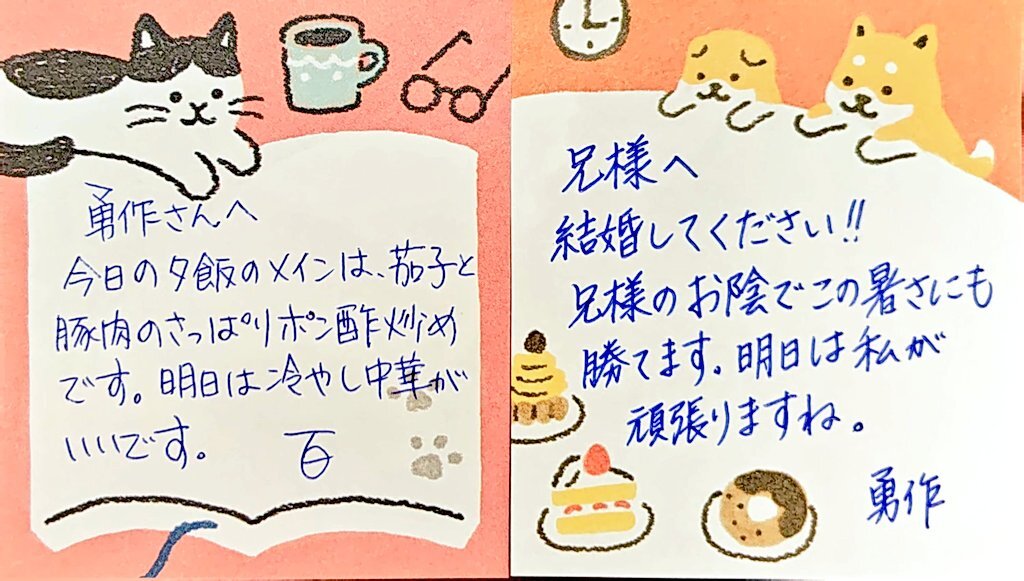 勇作さんへ
今日の夕飯のメインは、茄子と
豚肉のさっぱりポン酢炒め
です。明日は冷やし中華が
いいです。
百
兄様へ
結婚してください!!
兄様のお陰でこの暑さにも
勝てます。明日は私が
頑張りますね。
勇作